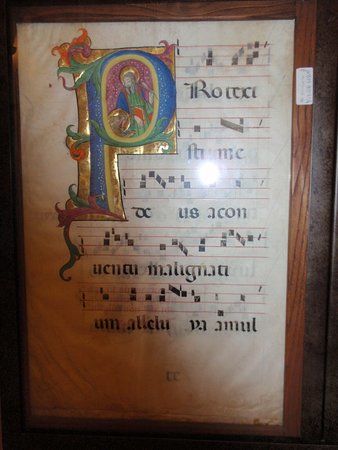 PRotexi
sti me
de us acon
uentu malignati
um allelu ya amul